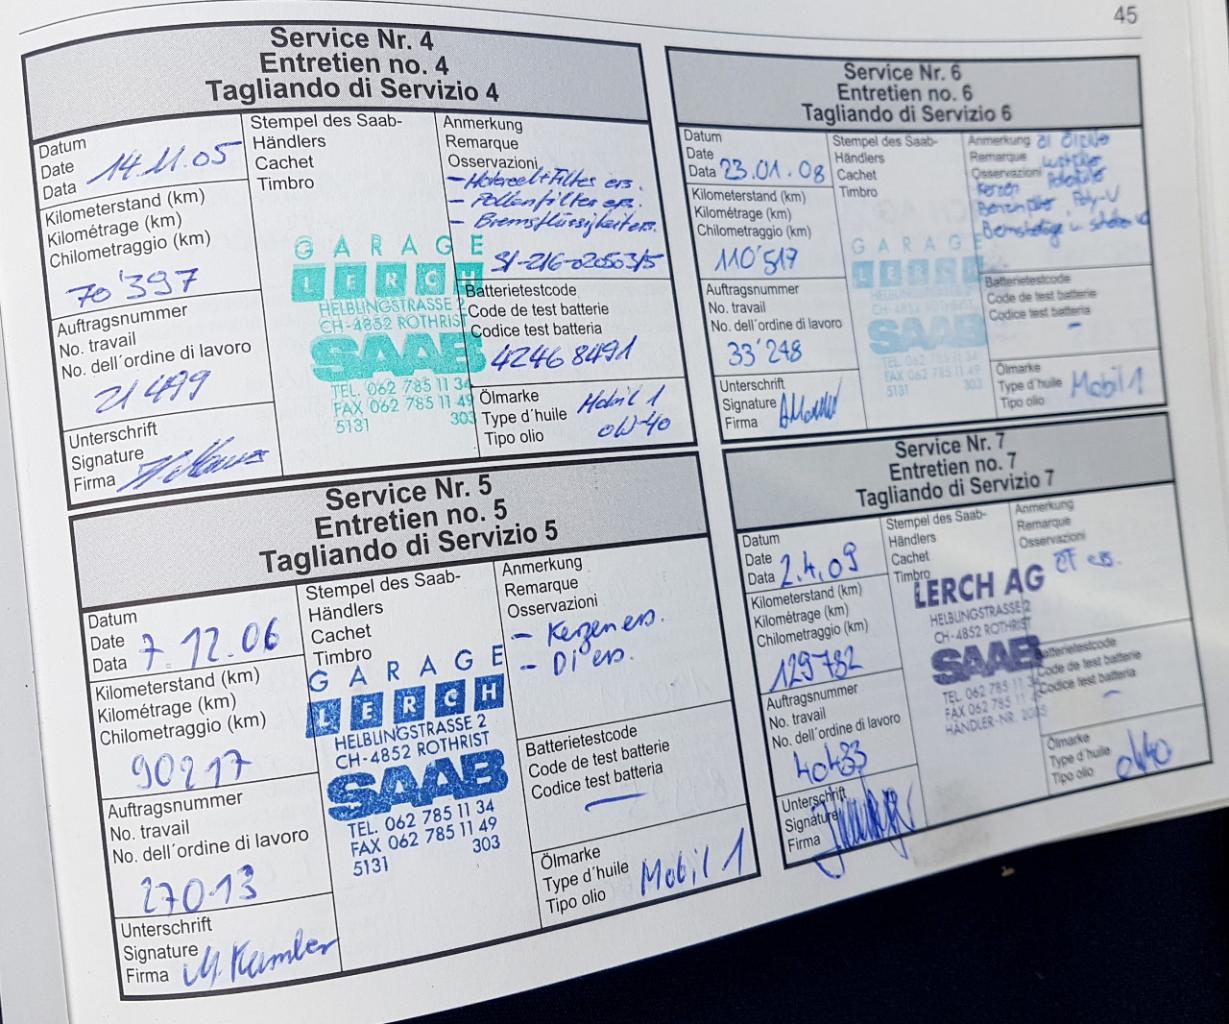 45
Service Nr. 4
Entretien no. 4
Tagliando di Servizio 4
Datum
Date
Data 14.11.05
Kilometerstand (km)
Kilométrage (km)
Chilometraggio (km)
70'397
Auftragsnummer
No. travail
No. dell´ordine di lavoro
21499
Unterschrift
Signature
Firma
Stempel des Saab-
Händlers
Cachet
Timbro
GARAGE
LERCH
HELBLINGSTRASSE 2
CH-4852 ROTHRIST
SAAB
TEL. 062 785 11 34
FAX 062 785 11 49
5131 303
Anmerkung
Remarque
Osservazioni
- Motoroel+Filter ers.
- Pollenfilter ers.
- Bremsflüssigkeit ers.
Batterietestcode
Code de test batterie
Codice test batteria
42468491
Ölmarke
Type d'huile Mobil 1
Tipo olio 0W-40
Service Nr. 5
Entretien no. 5
Tagliando di Servizio 5
Datum
Date
Data 7.12.06
Kilometerstand (km)
Kilométrage (km)
Chilometraggio (km)
90217
Auftragsnummer
No. travail
No. dell´ordine di lavoro
27013
Unterschrift
Signature
Firma
Stempel des Saab-
Händlers
Cachet
Timbro
GARAGE
LERCH
HELBLINGSTRASSE 2
CH-4852 ROTHRIST
SAAB
TEL. 062 785 11 34
FAX 062 785 11 49
5131 303
Anmerkung
Remarque
Osservazioni
- Kerzen ers.
- DI ers.
Batterietestcode
Code de test batterie
Codice test batteria
—
Ölmarke
Type d'huile
Tipo olio Mobil 1
Service Nr. 6
Entretien no. 6
Tagliando di Servizio 6
Datum
Date
Data 23.01.08
Kilometerstand (km)
Kilométrage (km)
Chilometraggio (km)
110'517
Auftragsnummer
No. travail
No. dell´ordine di lavoro
33'248
Unterschrift
Signature
Firma
Stempel des Saab-
Händlers
Cachet
Timbro
GARAGE
LERCH
HELBLINGSTRASSE
CH-4852 ROTHRIST
SAAB
TEL. 062 785 11 34
FAX 062 785 11 49
5131 303
Anmerkung
Remarque
Osservazioni
Kerzen
Poly-V
Batterietestcode
Code de test batterie
Codice test batteria
-
Ölmarke
Type d'huile Mobil 1
Tipo olio
Service Nr. 7
Entretien no. 7
Tagliando di Servizio 7
Datum
Date
Data 2.4.09
Kilometerstand (km)
Kilométrage (km)
Chilometraggio (km)
129782
Auftragsnummer
No. travail
No. dell´ordine di lavoro
40433
Unterschrift
Signature
Firma
Stempel des Saab-
Händlers
Cachet
Timbro
LERCH AG
HELBLINGSTRASSE 2
CH-4852 ROTHRIST
SAAB
TEL. 062 785 11 34
FAX 062 785 11
HÄNDLER-NR.
Anmerkung
Remarque
Osservazioni
ers.
Batterietestcode
Code de test batterie
Codice test batteria
-
Ölmarke
Type d'huile 0W40
Tipo olio